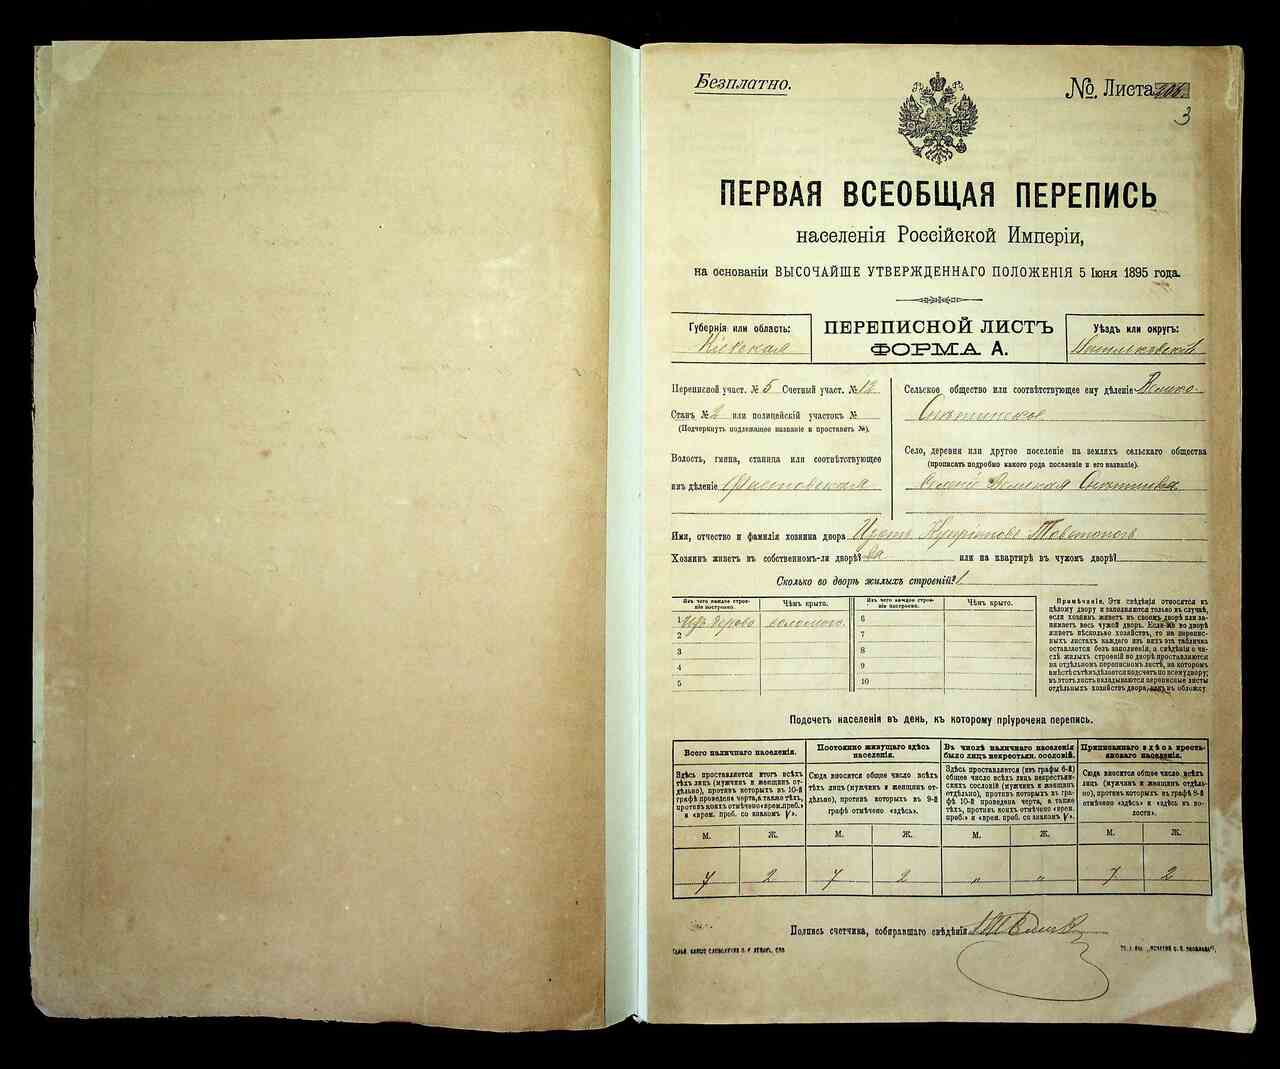 Безплатно.
№ Листа
3
ПЕРВАЯ ВСЕОБЩАЯ ПЕРЕПИСЬ
населенія Россійской Имперіи,
на основаніи ВЫСОЧАЙШЕ УТВЕРЖДЕННАГО ПОЛОЖЕНІЯ 5 Іюня 1895 года.
Губернія или область:
Кіевская
ПЕРЕПИСНОЙ ЛИСТЪ
ФОРМА А.
Уѣздъ или округъ:
Васильковскій
Переписной участ. № 5 Счетный участ. № 12
Станъ № 2 или полицейскій участокъ №
(Подчеркнуть подлежащее названіе и проставить №).
Волость, гмина, станица или соотвѣтствующее
имъ дѣленіе Фастовская
Сельское общество или соотвѣтствующее ему дѣленіе Велико-
Снѣтинское
Село, деревня или другое поселеніе на земляхъ сельскаго общества
(прописать подробно какого рода поселеніе и его названіе).
Великая Снѣтинка
Имя, отчество и фамилія хозяина двора
Хозяинъ живетъ въ собственномъ-ли дворѣ? да или на квартирѣ въ чужомъ дворѣ?
Сколько во дворѣ жилыхъ строеній? 1
Изъ чего каждое строе-
ніе построено.
Чѣмъ крыто.
1 Изъ дерева соломою
2
3
4
5
Изъ чего каждое строе-
ніе построено.
Чѣмъ крыто.
6
7
8
9
10
Примѣчаніе. Эти свѣдѣнія относятся къ
цѣлому двору и заполняются только въ случаѣ,
если хозяинъ живетъ въ своемъ дворѣ или за-
нимаетъ весь чужой дворъ. Если же во дворѣ
живетъ нѣсколько хозяйствъ, то на перепис-
ныхъ листахъ каждаго изъ нихъ эта табличка
оставляется безъ заполненія, а свѣдѣнія о чи-
слѣ жилыхъ строеній во дворѣ проставляются
на отдѣльномъ переписномъ листѣ, на которомъ
вмѣстѣ съ тѣмъ дѣлается подсчетъ по всему двору;
въ этотъ листъ вкладываются переписные листы
отдѣльныхъ хозяйствъ двора, какъ въ обложку
Подсчетъ населенія въ день, къ которому пріурочена перепись.
Всего наличнаго населенія.
Здѣсь проставляется итогъ всѣхъ
лицъ (мужчинъ и женщинъ от-
дѣльно), противъ которыхъ въ 10-й
графѣ проведена черта, а также тѣхъ,
противъ коихъ отмѣчено «врем. преб.»
и «врем. проб. со знакомъ V».
Постоянно живущаго здѣсь
населенія.
Сюда вносится общее число всѣхъ
тѣхъ лицъ (мужчинъ и женщинъ от-
дѣльно), противъ которыхъ въ 9-й
графѣ отмѣчено «здѣсь».
Въ числѣ наличнаго населенія
было лицъ некрестьян. сословій.
Здѣсь проставляется (изъ графы 6-й)
общее число всѣхъ лицъ некрестьян-
скихъ сословій (мужчинъ и женщинъ
отдѣльно), противъ которыхъ въ гра-
фѣ 10-й проведена черта, а также
тѣхъ, противъ коихъ отмѣчено «врем.
преб.» и «врем. преб. со знакомъ V».
Приписаннаго здѣсь кресть-
янскаго населенія.
Сюда вносится общее число всѣхъ
лицъ (мужчинъ и женщинъ отдѣль-
но), противъ которыхъ въ графѣ 8-й
отмѣчено «здѣсь» и «здѣсь въ во-
лости».
М. Ж. М. Ж. М. Ж. М. Ж.
7 2 7 2 " " 7 2
Подпись счетчика, собиравшаго свѣдѣнія